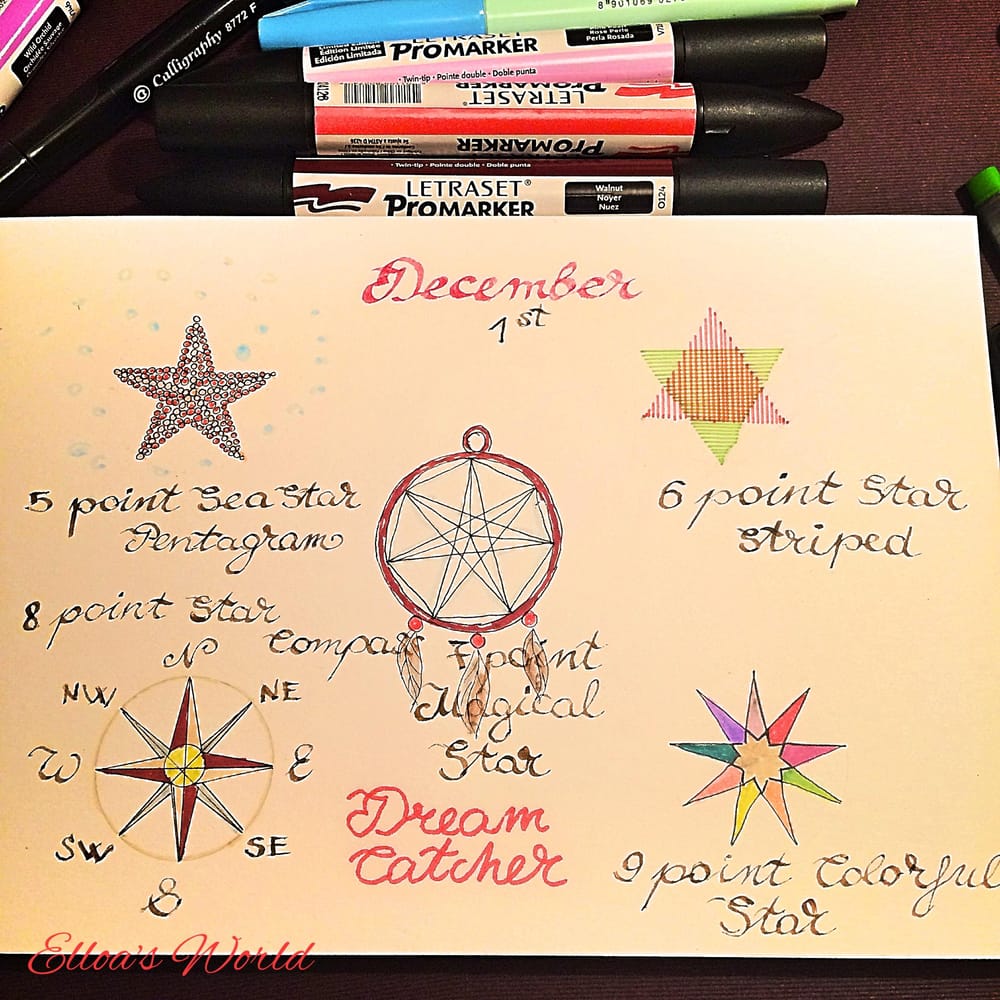 Wild Orchid
@ Calligraphy 8772 F
Edición Limitada
PROMARKER
Rose Perle
Perla Rosada
Twin-tip · Pointe double · Doble punta
LETRASET®
PROMARKER
Twin-tip · Pointe double · Doble punta
LETRASET®
PROMARKER
Walnut
Noyer
Nuez
O124
December
1st
5 point Sea Star
Pentagram
6 point Star
Striped
8 point Star
Compass
N
NW
NE
W
E
SW
SE
S
7 point
Magical
Star
Dream
Catcher
9 point Colorful
Star
Elloa's World